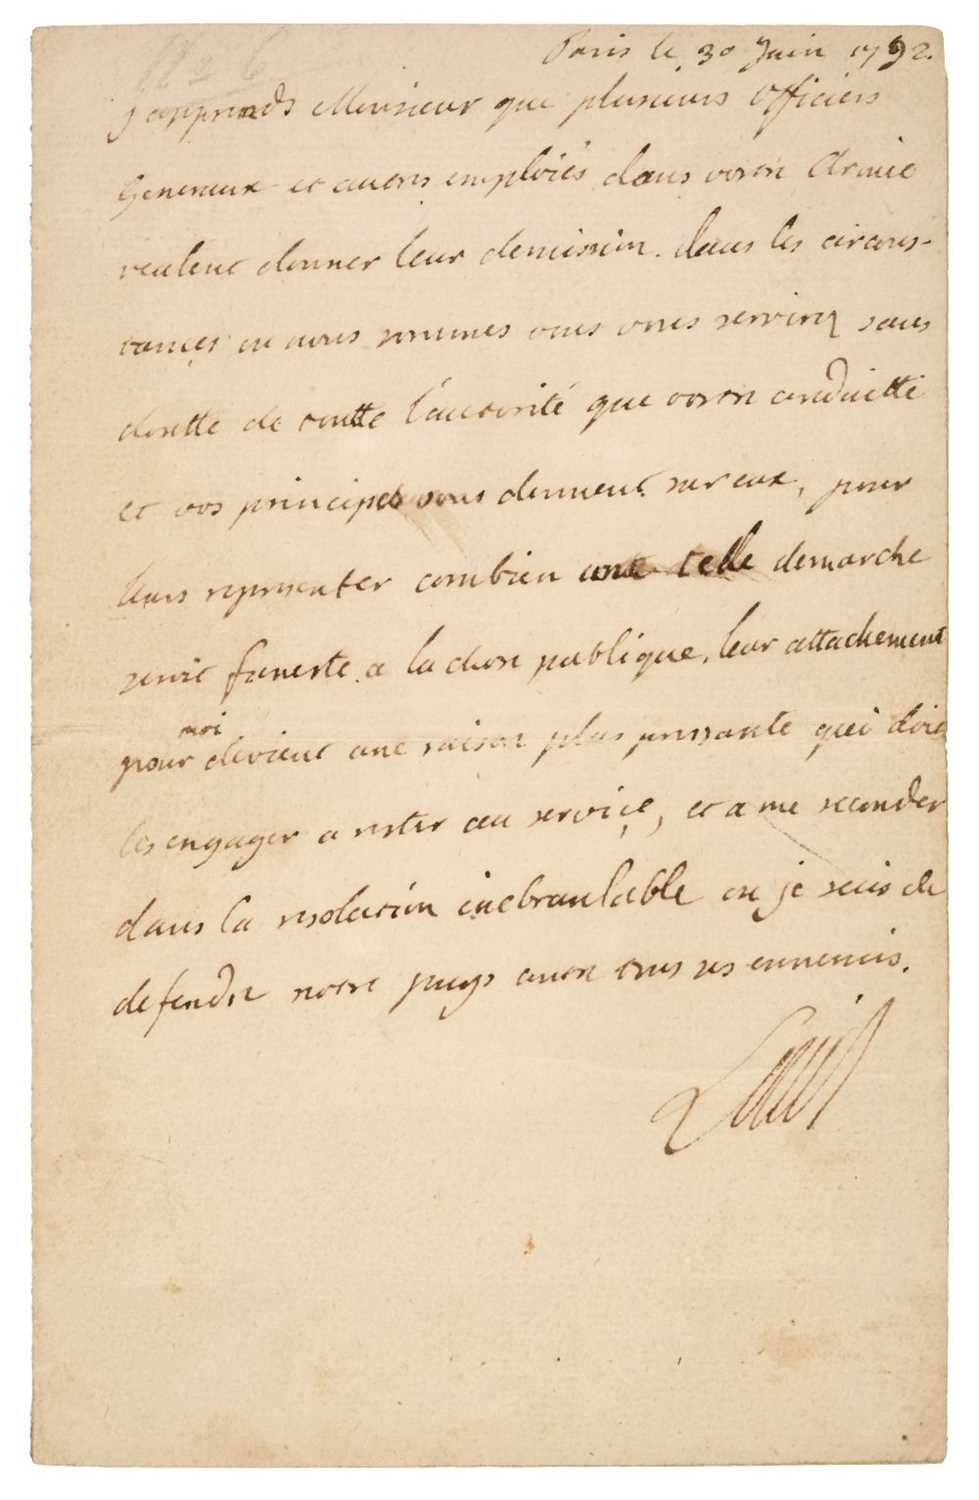 Paris le 30 Juin 1792.
j apprends Monsieur que plusieurs Officiers
Generaux et autres emploiés dans votre Armée
veulent donner leur demission. dans les circons-
tançes ou nous sommes vous vous servirez sans
doutte de toutte l'autorité que votre conduitte
et vos principes vous donnent sur eux, pour
leurs representer combien une telle demarche
seroit funeste a la chose publique, leur attachement
pour moi devient une raison plus puissante qui doit
les engager a rester au serviçe, et a me seconder
dans la resolution inebranlable ou je suis de
defendre notre pays contre tous ses ennemis.
Louis